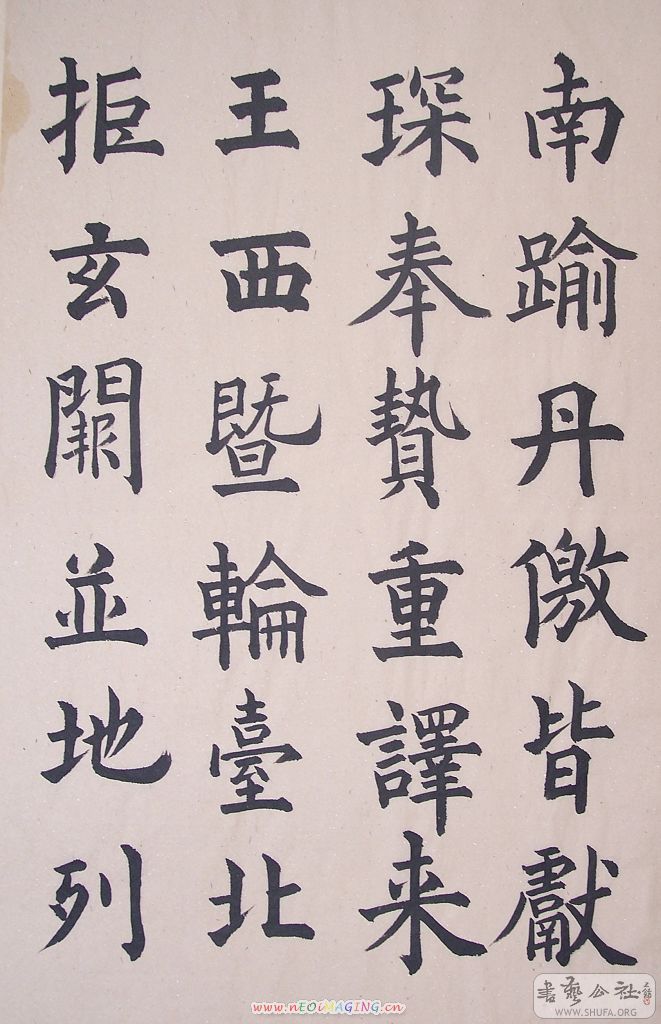 南踰丹徼皆獻
琛奉贄重譯来
王西暨輪臺北
拒玄闕並地列
書藝公社
WWW.SHUFA.ORG
www.nEOiMAGING.cn